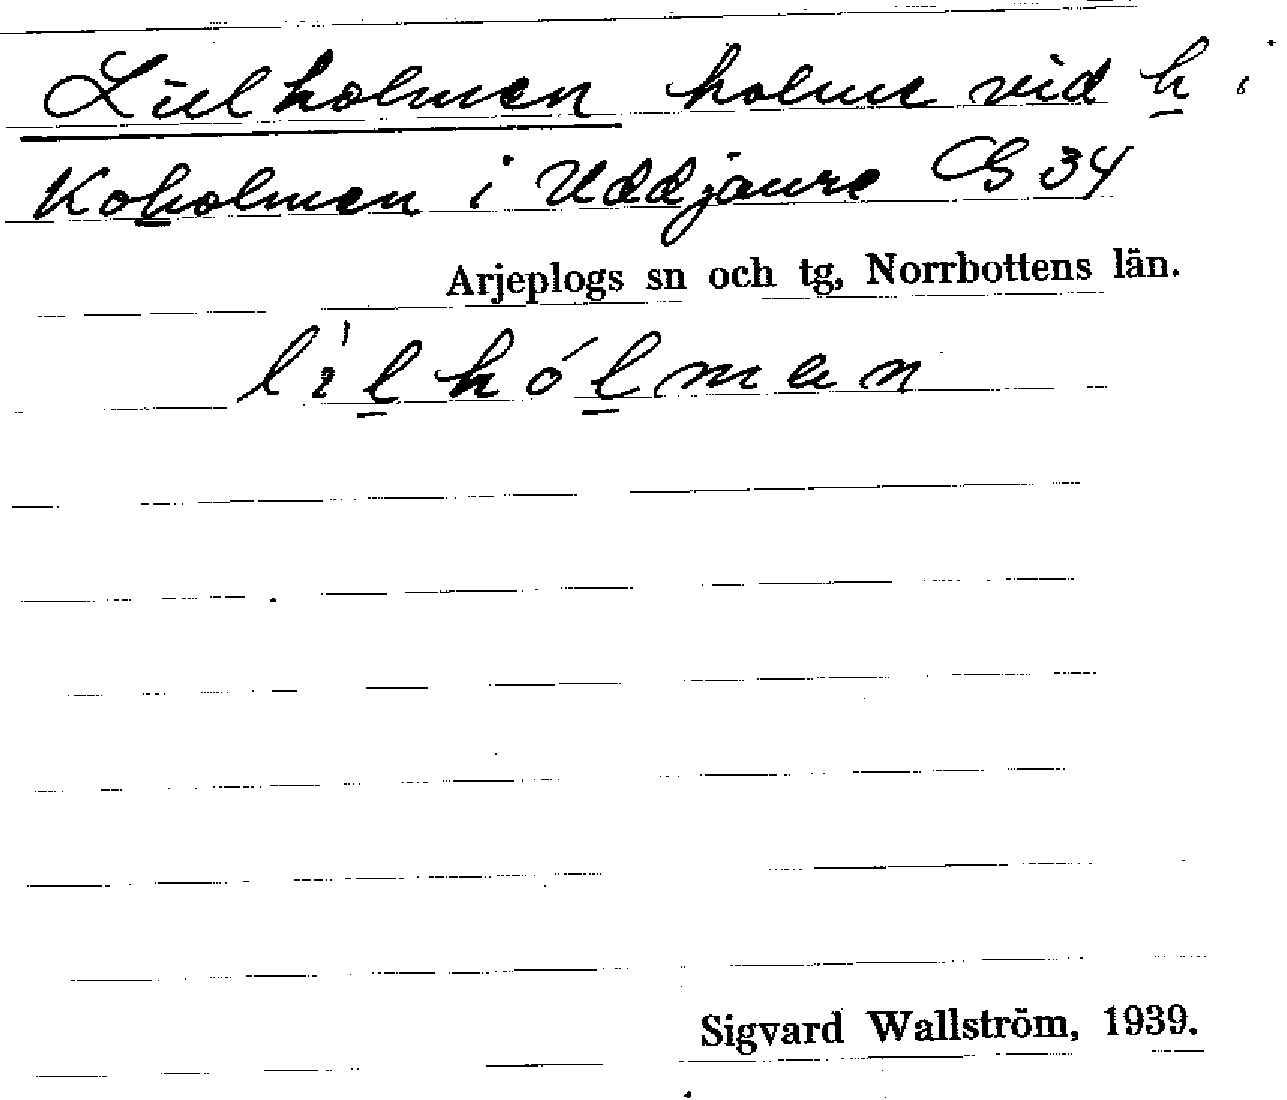 Lielholmen holme vid h i
Koholmen i Uddjaure G 34
Arjeplogs sn och tg, Norrbottens län.
lìlhólman
Sigvard Wallström, 1939.